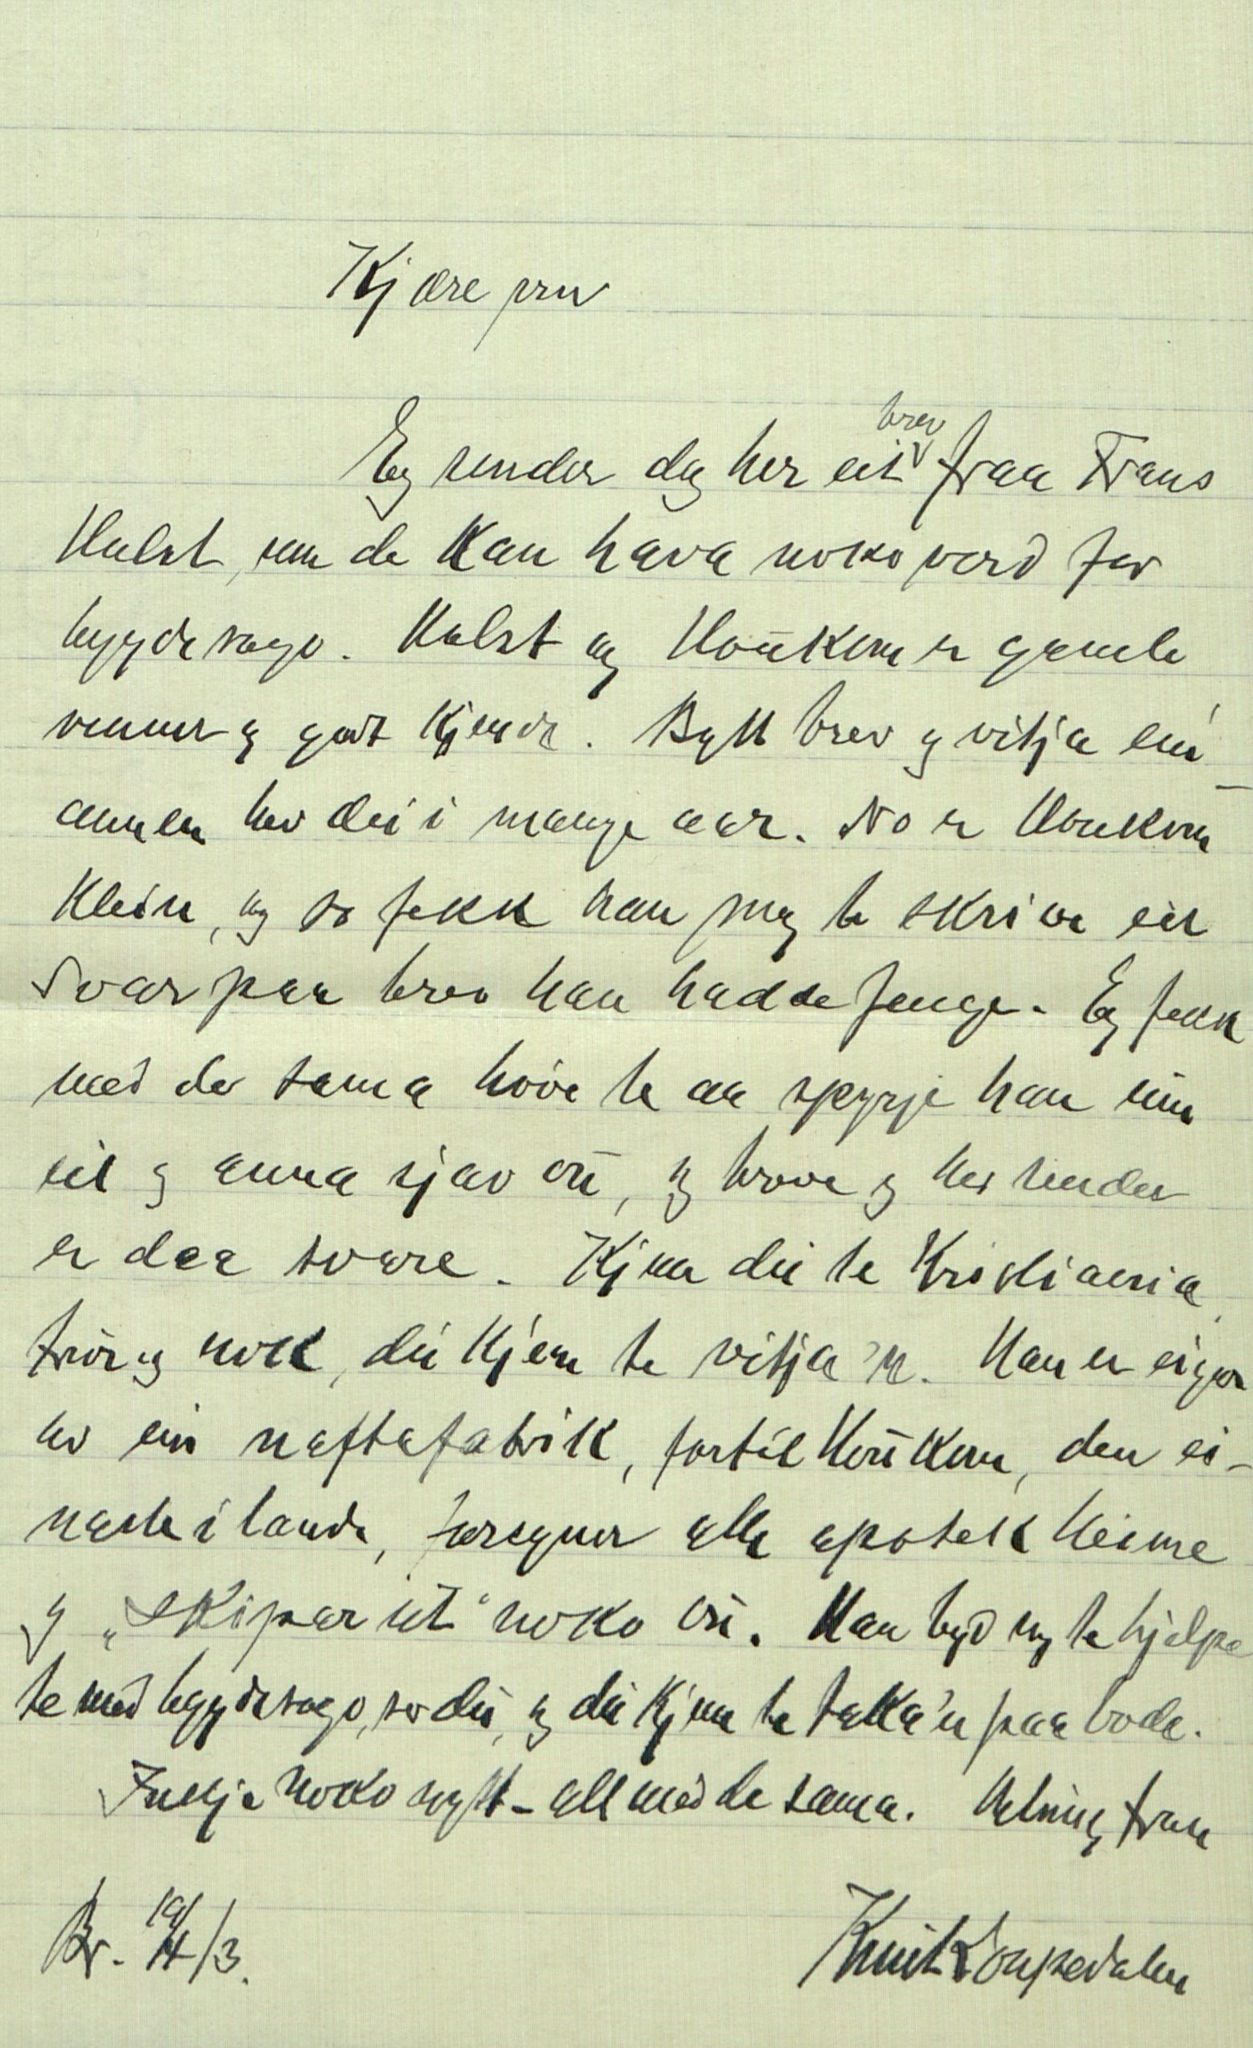 Kjære
Eg sender deg her eit brev fraa Frans
Hulst, som de kan hava noko verd for
bygdesogo. Hulst og Houkom er gamle
venner og godt kjende. Bytt brev og vitja ein
annen hev dei i mange aar. No er Houkom
klein, og so fekk han meg te skrive eit
svar paa brev han hadde fenge. Eg fekk
med de sama høve te aa spyrje han um
eit og anna sjav òu, og breve eg her sender
er daa svare. Kjem du te Kristiania,
trur eg nok, du kjem te vitja'n. Han er eigar
av ein naftafabrik, fortel Houkom, den ei-
naste i lande, forsyner alle apotek heime
og "skipar ut" noko òu. Han byd seg te hjelpe
te med bygdesogo, ser du, og du kjem te taka'n paa orde.
Inkje noko nytt - allt med de sama. Helsing fraa
Br. 19/3.
Knut Loupedalen